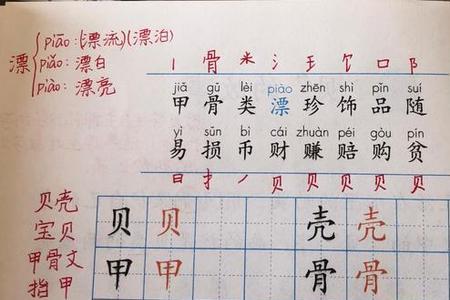 漂 piāo:(漂流)(漂泊)
piǎo: 漂白
piào: 漂亮
丨 骨 米 氵 王 饣 口 阝
jiǎ gǔ lèi piào zhēn shì pǐn suí
甲 骨 类 漂 珍 饰 品 随
yì sǔn bì cái zhuàn péi gòu pín
易 损 币 财 赚 赔 购 贫
日 扌 丿 贝 贝 贝 贝 贝
贝壳 贝 贝 壳 壳
宝贝
甲骨文 甲 甲 骨 骨
指甲